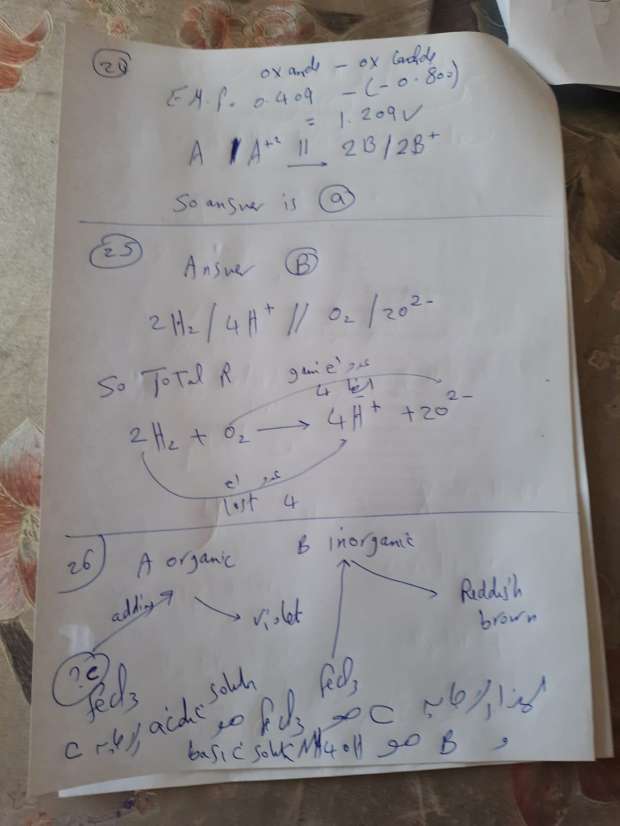 24
ox anode - ox cathode
E.M.f. 0.409 - (-0.800)
= 1.209 V
A / A⁺² || 2B / 2B⁺
So answer is (a)
25
Answer (B)
2H₂ / 4H⁺ // O₂ / 2O²⁻
So Total R
gain e⁻ عدد
4
2H₂ + O₂ → 4H⁺ + 2O²⁻
e⁻ عدد
lost 4
26
A organic B inorganic
adding
violet
Reddish
brown
?c
fecl₃ fecl₃
acidic solutn
C مع fecl₃ مع C
basic solut NH4OH مع B و